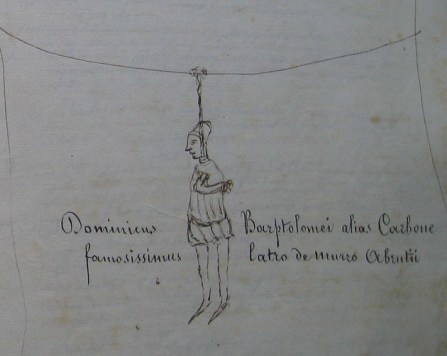 Dominicus Barptolomei alias Carbone
famosissimus latro de murro Abrutii